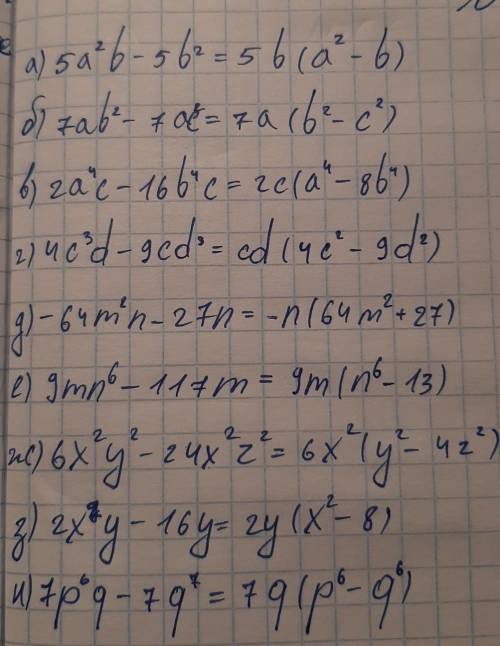 а) 5a²b - 5b² = 5b(a² - b)
б) 7ab² - 7ac² = 7a(b² - c²)
в) 2a⁴c - 16b⁴c = 2c(a⁴ - 8b⁴)
г) 4c³d - 9cd³ = cd(4c² - 9d²)
д) -64m²n - 27n = -n(64m² + 27)
е) 9mn⁶ - 117m = 9m(n⁶ - 13)
ж) 6x²y² - 24x²z² = 6x²(y² - 4z²)
з) 2x²y - 16y = 2y(x² - 8)
и) 7p⁶q - 7q⁷ = 7q(p⁶ - q⁶)